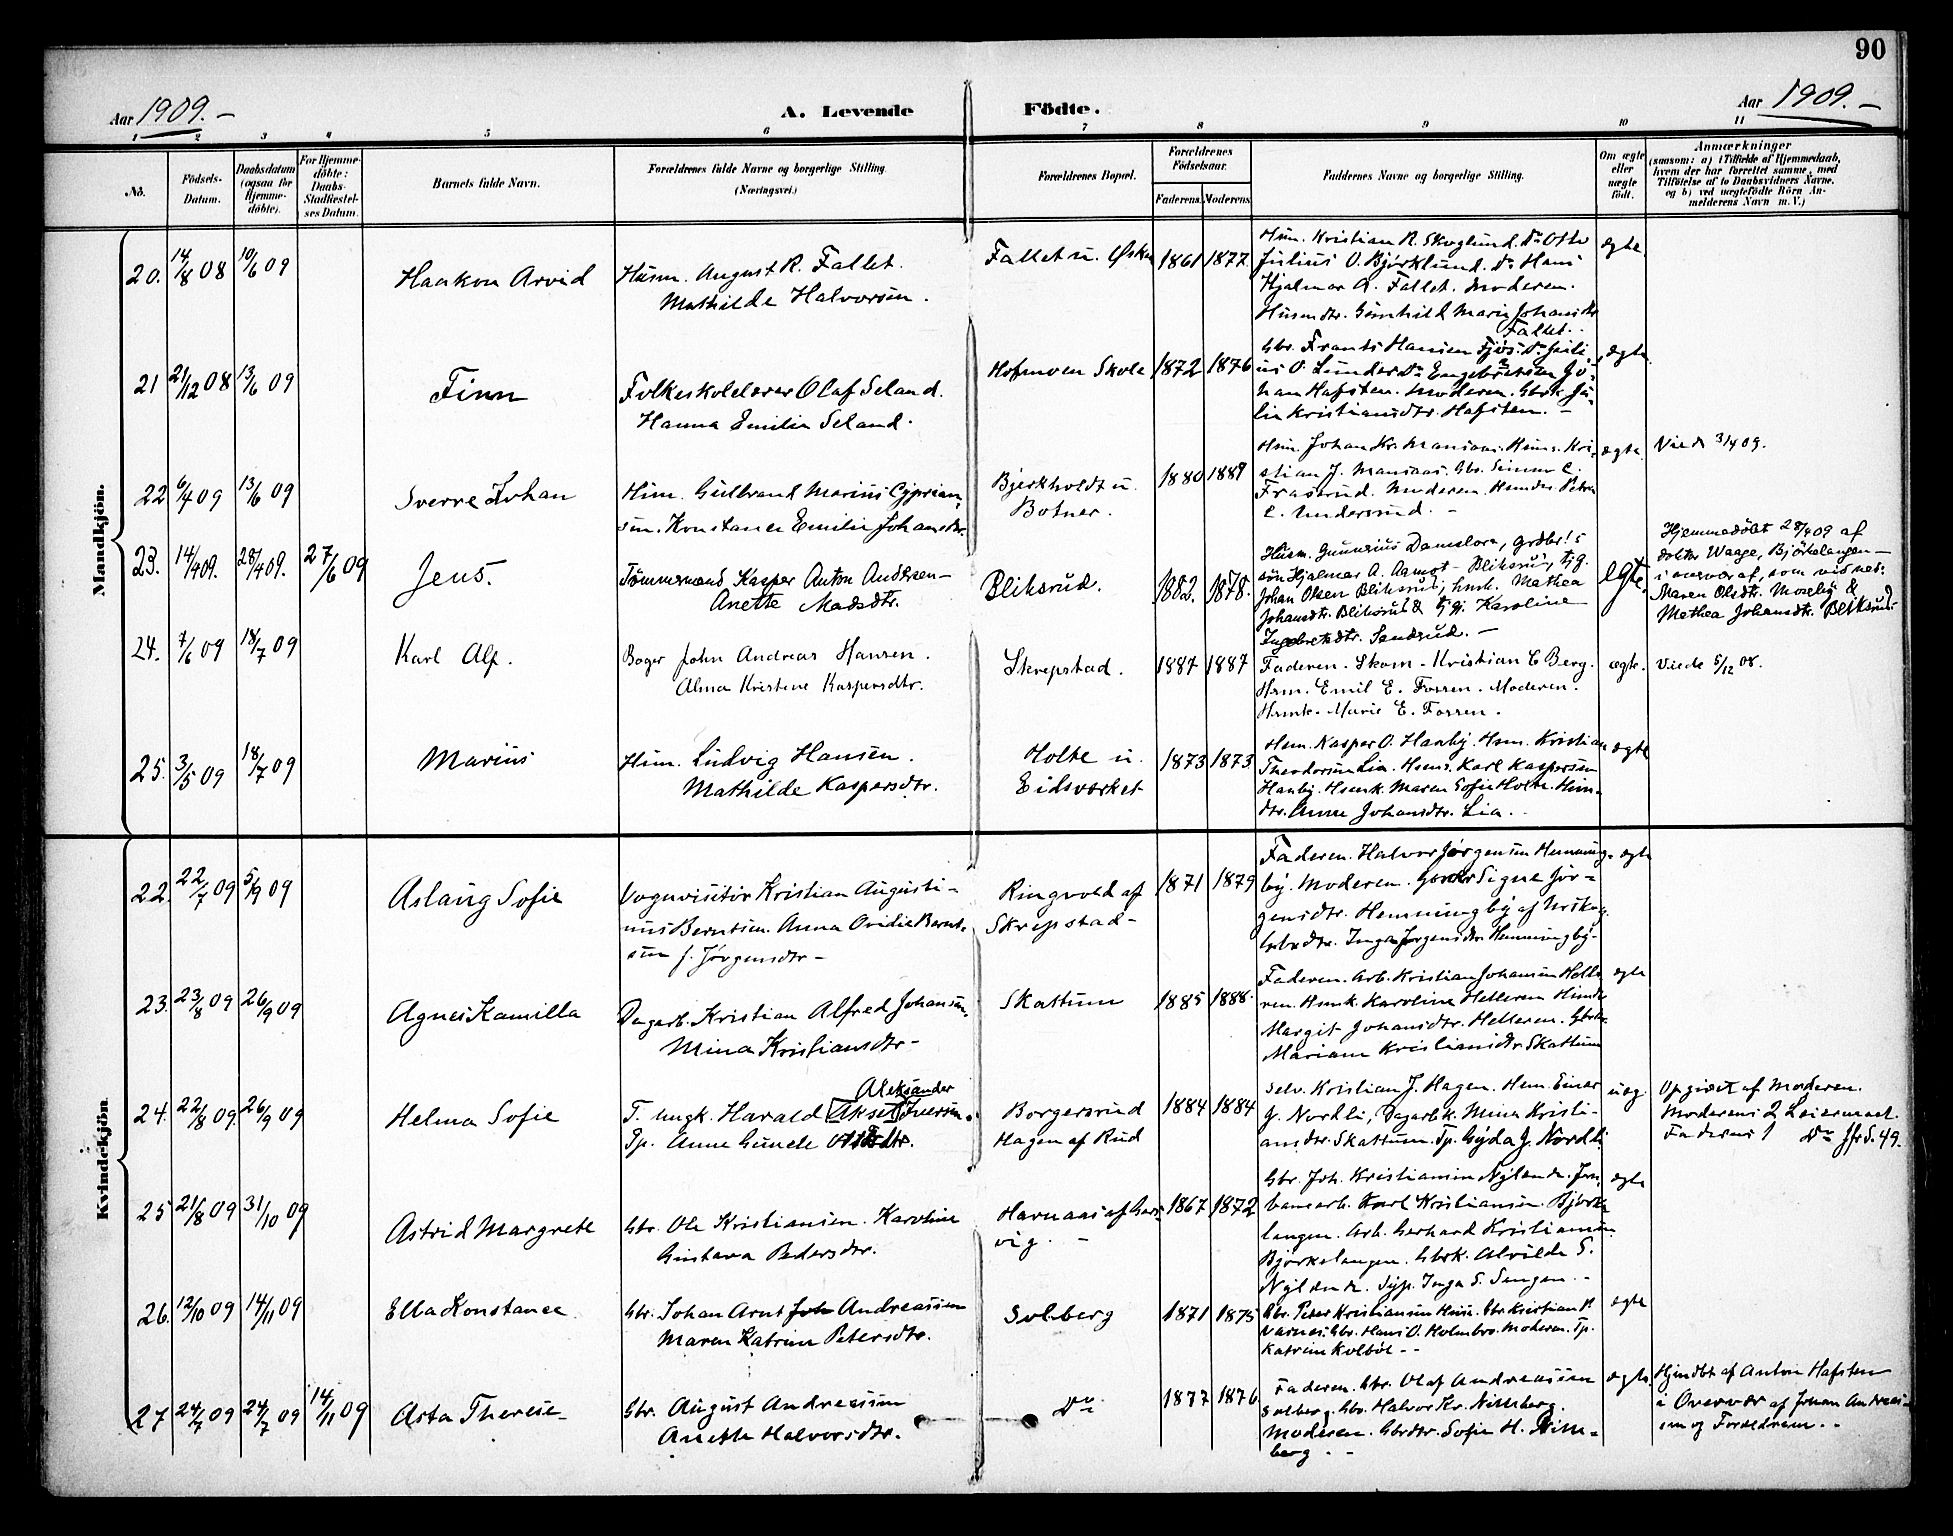 90
Aar 1909.–
A. Levende Födte.
Aar 1909.–
1 2 3 4 5 6 7 8 9 10 11
No.
Födsels-Datum.
Daabsdatum (ogsaa for Hjemme-döbte).
For Hjemme-döbte: Daabs-Stadfæstel-ses Datum.
Barnets fulde Navn.
Forældrenes fulde Navne og borgerlige Stilling (Næringsvei.)
Forældrenes Bopæl.
Forældrenes Födselsaar.
Faderens. Moderens.
Faddernes Navne og borgerlige Stilling.
Om ægte eller uægte födt.
Anmærkninger
(saasom: a) i Tilfælde af Hjemmedaab,
hvem der har forrettet samme, med
Tilföielse af to Daabsvidners Navne,
og b) ved uægtefödte Börn An-
melderens Navn m. V.)
Mandkjön.
20. 14/8 08 10/6 09
Haakon Arvid
Husm. August R. Fallet.
Mathilde Halvorsen.
Fallet u.
1861 1877
Hsm. Kristian R. Skoglund. Do Otto
Julius O. Björklund. Do Hans
Hjalmar A. Fallet. Moderen.
Husmdtr. Gunhild Marie Johansdtr
Fallet.
ægte
21 21/12 08 13/6 09
Finn
Folkeskolelærer Olaf Seland.
Hanna Emilie Seland.
Hofmoen Skole
1872 1876
Gbr. Frants Hansen Fjøs. Do Juli-
us O. Lunder Do Engebretsen Jo-
han Hafsten. Moderen. Gbrk Ju-
lie Kristiansdtr. Hafsten. –
ægte
22 6/4 09 13/6 09
Sverre Johan
Hsm. Gulbrand Marius Cyprian-
sen. Konstance Emilie Johansdtr.
Bjerkholdt u.
Botner.
1880 1889
Hsm. Johan Kr. Mansaas. Hsms. Kri-
stian J. Mansaas. Gbr. Simen C.
Fraserud. Moderen. Hsmdtr. Petra
C. Undersrud. –
ægte.
Viede 3/4 09.
23. 14/4 09. 28/4 09. 27/6 09
Jens.
Tömmermand Kasper Anton Andersen –
Anette Madsdtr.
Bliksrud.
1882. 1878.
Husm. Gunerius Damslora, grdbr.s
søn Hjalmar A. Aamot – Bliksrud, tjg.
Johan Olsen Bliksrud, hmk. Mathea
Johansdtr. Bliksrud & tjgj. Karoline
Ingebretsdtr. Sandsrud. –
ægte.
Hjemmedöbt 28/4 09 af
doktor Waage, Björkelangen –
i overvær af, som vidner:
Maren Olsdtr. Moseby &
Mathea Johansdtr. Bliksrud.
24. 7/6 09 18/7 09
Karl Alf.
Bager John Andreas Hansen.
Alma Kristine Kaspersdtr.
Skrepstad.
1887 1887
Faderen. Skom. Kristian E Berg.
Hsm. Emil E. Fossen. Moderen.
Hsmk. Marie E. Fossen.
ægte.
Viede 5/12 08.
25. 3/5 09 18/7 09
Marius
Hsm. Ludvig Hansen.
Mathilde Kaspersdtr.
Holte u.
Eidsverket
1873 1873
Hsm. Kasper O. Hanby. Hsm. Kristian
Theodorsen Lia. Hsms. Karl Kaspersen
Hanby. Hsmk. Maren Sofie Holte. Hsm-
dtr. Anne Johansdtr. Lia.
ægte
Kvindekjön.
22. 22/7 09 5/9 09
Aslaug Sofie
Vognvisitör Kristian Augusti-
nus Berntsen. Anna Ovidia Bernt-
sen f. Jörgensdtr –
Ringvold af
Skrepstad –
1871 1879
Faderen. Halvor Jörgensen Hemming-
by. Moderen. Signe Jör-
gensdtr. Hemmingby af Urskog.
Gbrdtr. Inga Jörgensdtr Hemmingby-
ægte
23. 23/8 09 26/9 09
Agnes Kamilla
Dagarb. Kristian Alfred Johansen.
Mina Kristiansdtr –
Skattum
1885 1888.
Faderen. Arb. Kristian Johansen Helle-
ren. Hsmk. Karoline Helleren Hsmdtr
Margit Johansdtr. Helleren. Gbrdtr.
Mariane Kristiansdtr Skattum
ægte
24. 22/8 09. 26/9 09
Helma Sofie
Aleksander
T. ungk. Harald [Aksel] Iversen.
Tp. Anne Gunde
Borgersrud
Hagen af Rud
1884 1884
Selv. Kristian J. Hagen. Hsm. Einar
G. Nordli, Dagarbk. Mina Kristi-
ansdtr. Skattum. Tp. Gyda G. Nordli
uæg.
Opgivet af Moderen.
Moderens 2 Leiermaal.
Faderens 1 Do Jfr S. 49.
25 21/8 09 31/10 09
Astrid Margrete
Gbr. Ole Kristiansen. Karoline
Gustava Pedersdtr.
Harnaas af
vig. –
1867 1872
Gbr. Joh. Kristiansen Nylænde. Jern-
banearb. Karl Kristiansen. Björke
langen. Arb. Gerhard Kristiansen.
Björkelangen. Gbrk. Alvilde S.
Nylænde. Syp. Inga S. Sangen. –
ægte
26. 12/10 09 14/11 09
Ella Konstance
Gbr. Johan Arnt Joh Andreassen
Maren Katrine Petersdtr.
Solberg
1871 1875
Gbr. Peter Kristiansen Gbr. Kristian P.
Varnes. Gbr. Hans O. Holmbro. Moderen. Tp.
Katrine Kolböl –
ægte
27 24/7 09 24/7 09 14/11 09
Asta Therese
Gbr. August Andreassen
Anette Halvorsdtr.
Do
1877 1876
Faderen. Gbr. Olaf Andreassen
Solberg. Gbr. Halvor Kr.
Moderen. Gbrdtr. Sofie H.
berg. –
ægte
Hjmdbt af Anton Hafsten
i Overvær af Johan Andreas-
sen og Forældrene. –